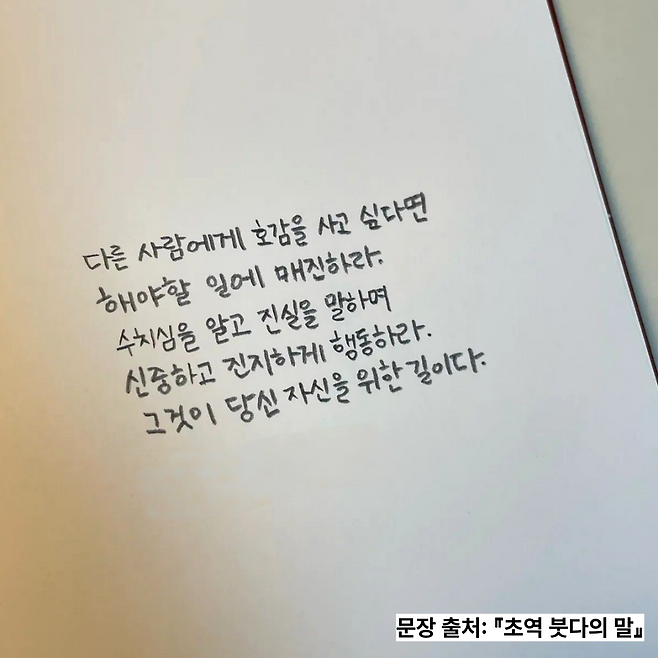 다른 사람에게 호감을 사고 싶다면
해야할 일에 매진하라.
수치심을 알고 진실을 말하며
신중하고 진지하게 행동하라.
그것이 당신 자신을 위한 길이다.
문장 출처: 『초역 붓다의 말』